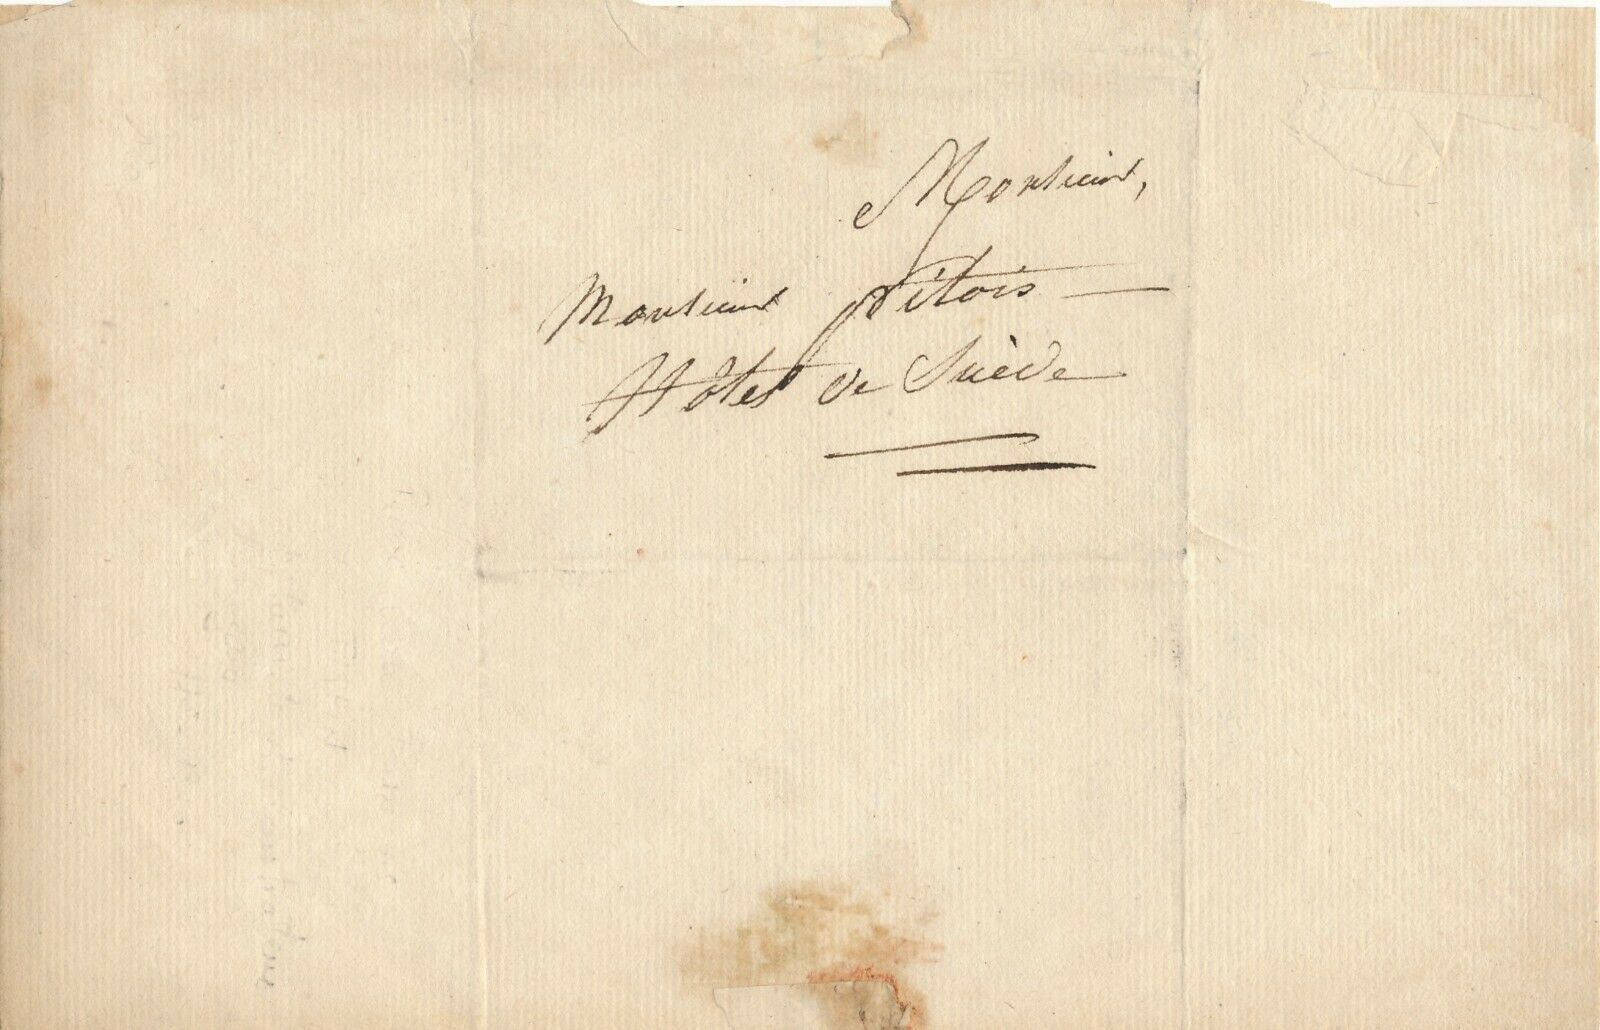 Monsieur,
Monsieur Pitois
Hôtel de Suède